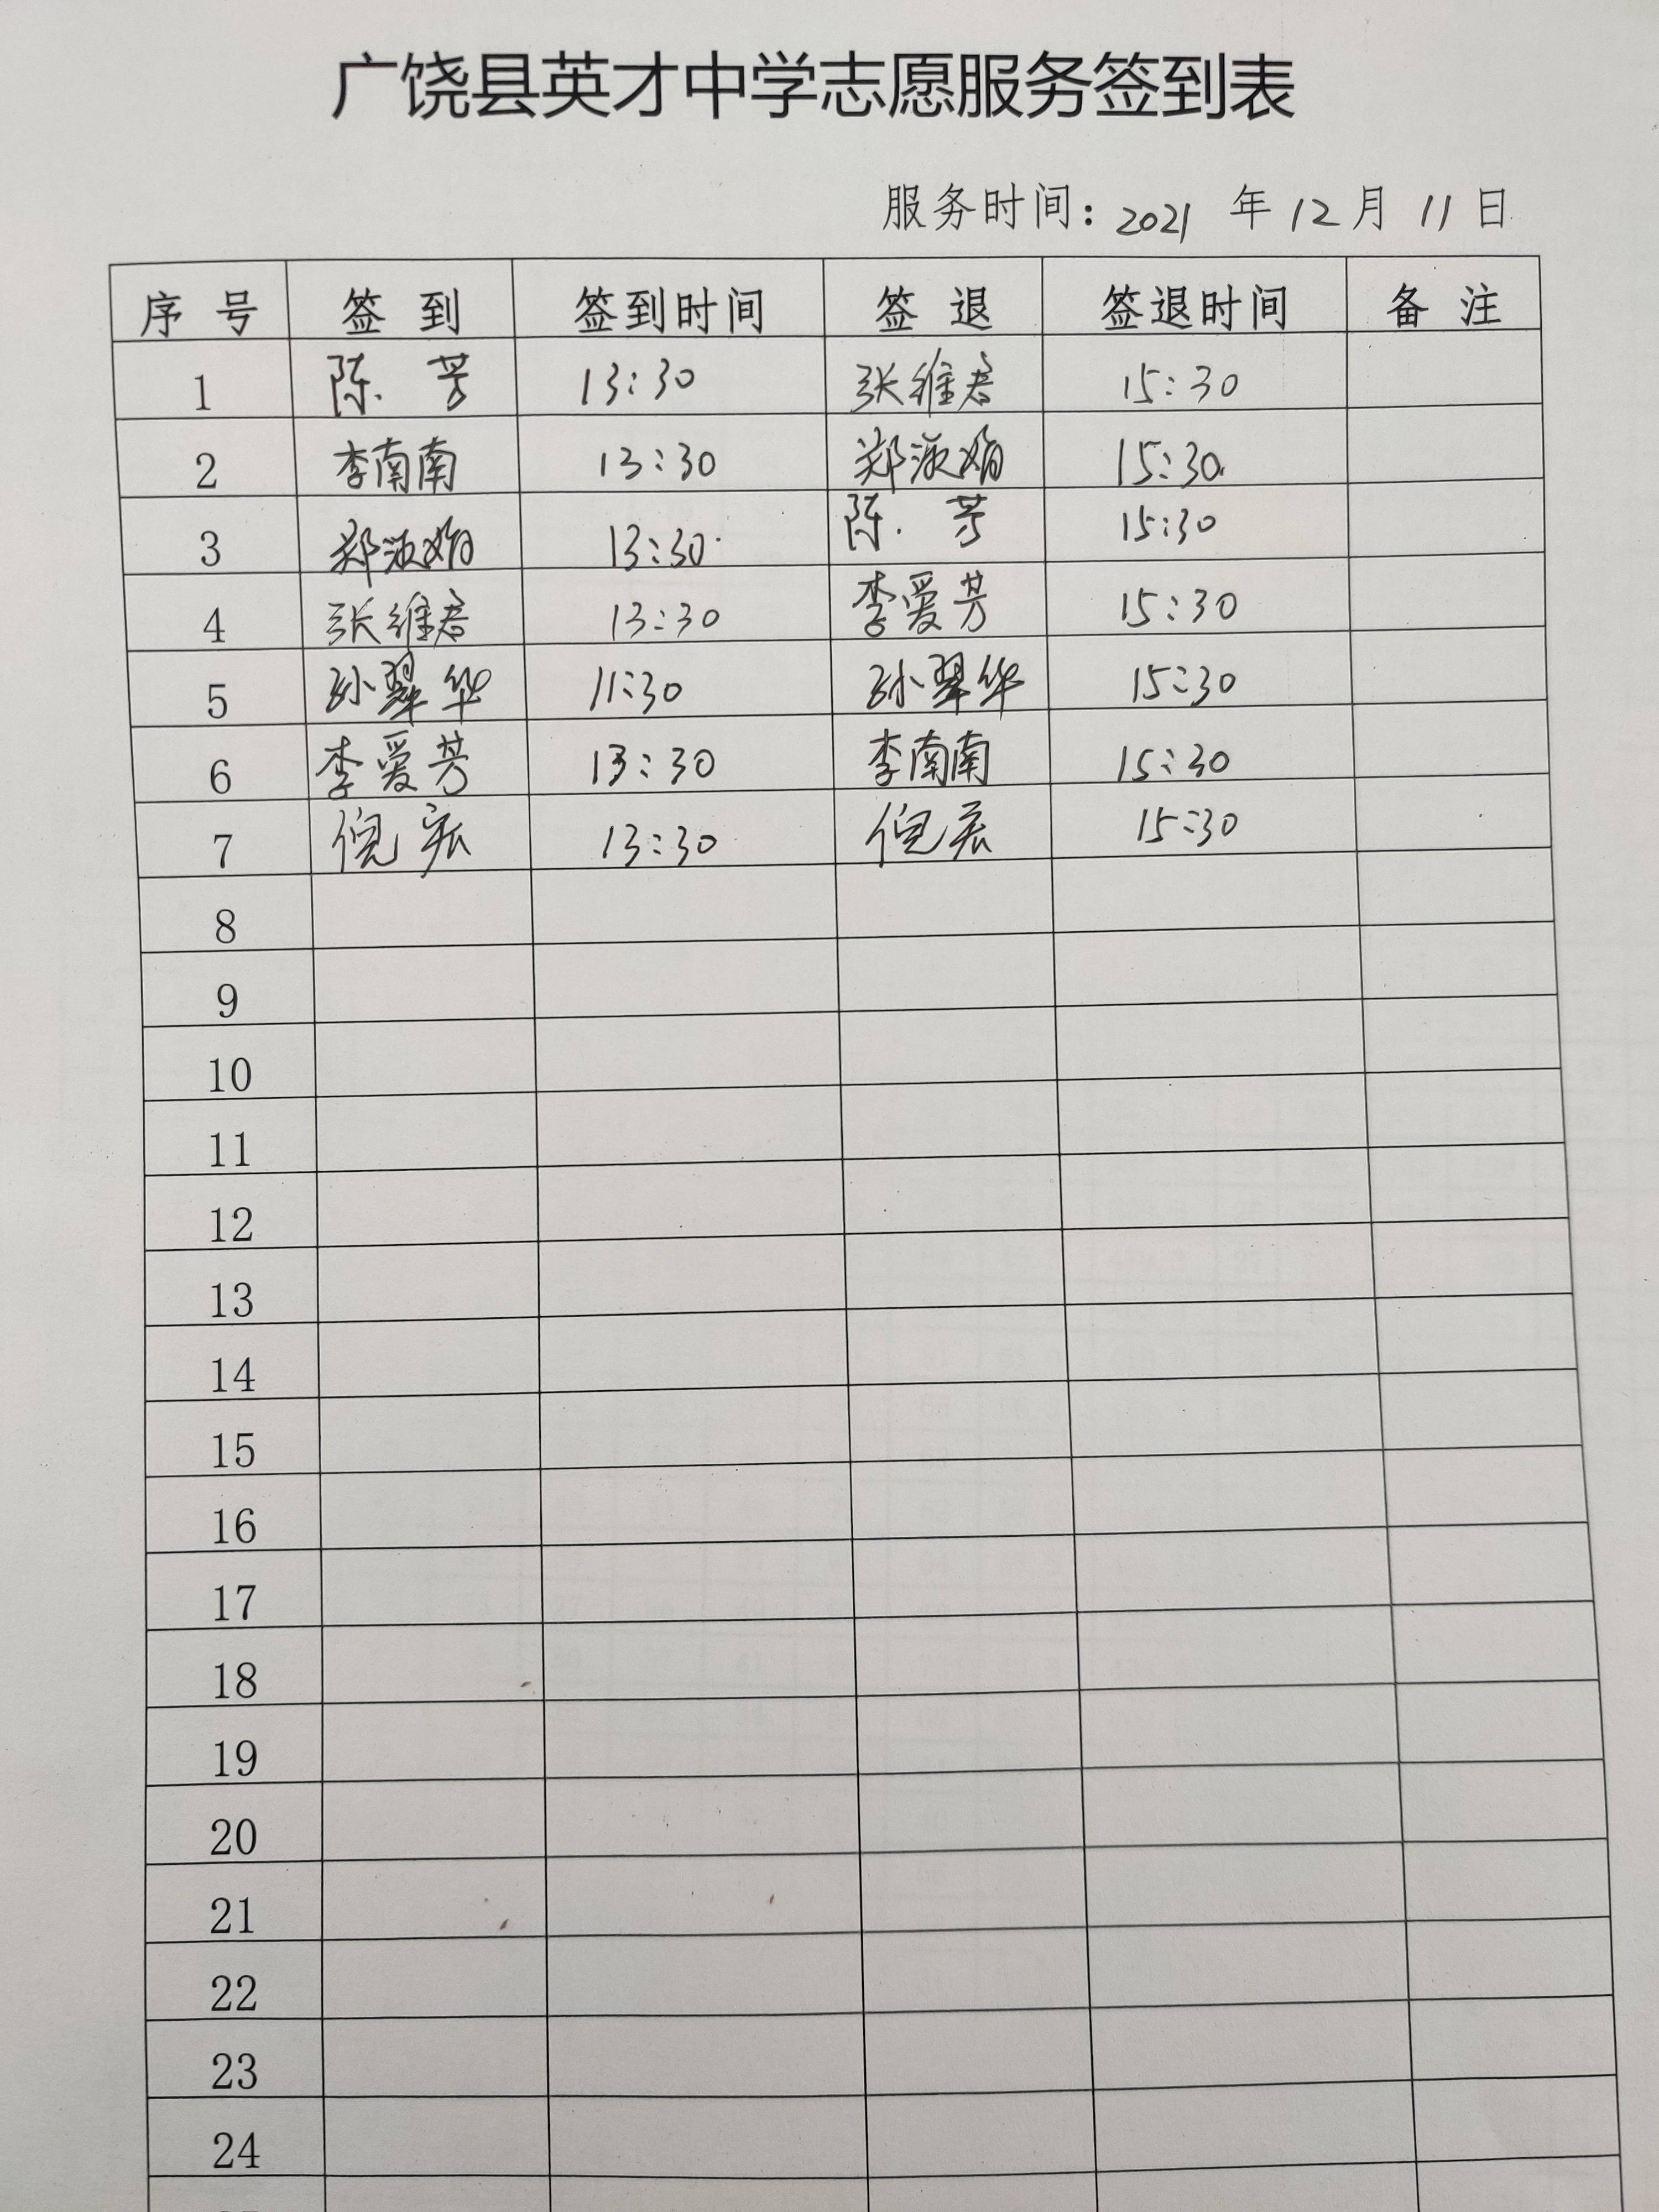 广饶县英才中学志愿服务签到表
服务时间: 2021 年 12 月 11 日
序号 签到 签到时间 签退 签退时间 备注
1 陈芳 13:30 张维君 15:30
2 李南南 13:30 郑淑娟 15:30
3 郑淑娟 13:30 陈芳 15:30
4 张维君 13:30 李爱芳 15:30
5 孙翠华 11:30 孙翠华 15:30
6 李爱芳 13:30 李南南 15:30
7 倪宏 13:30 倪宏 15:30
8
9
10
11
12
13
14
15
16
17
18
19
20
21
22
23
24